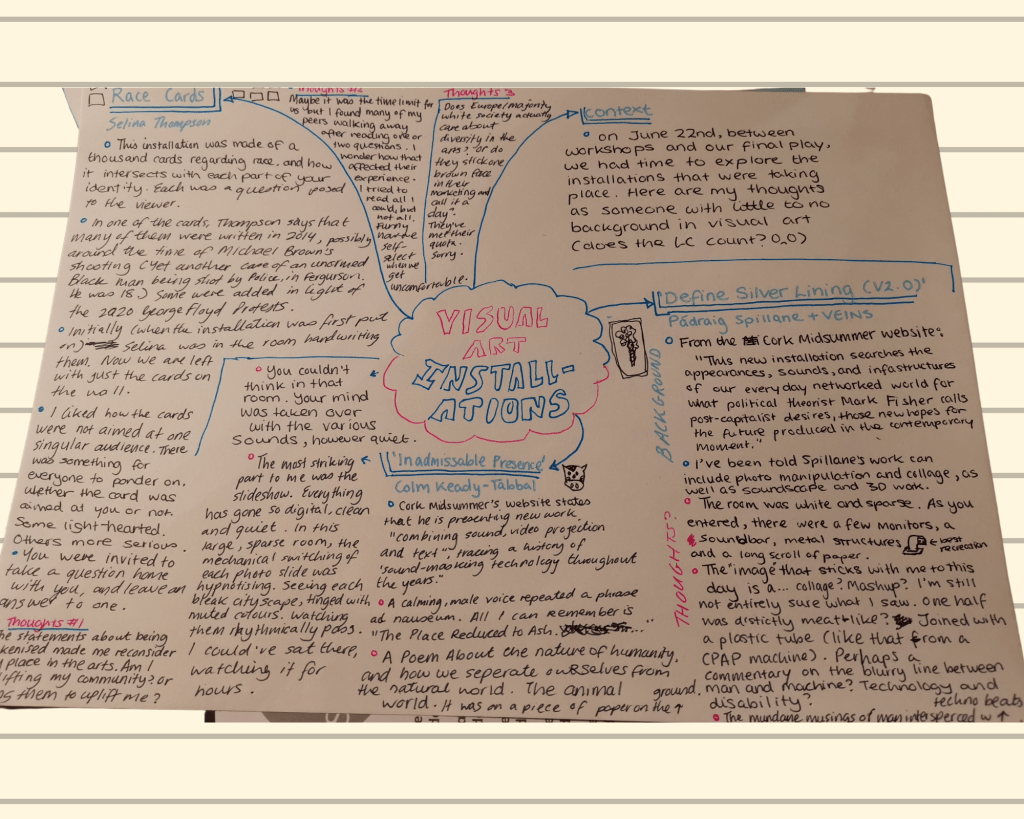 Race Cards
Selina Thompson
This installation was made of a
thousand cards regarding race, and how
it intersects with each part of your
identity. Each was a question posed
to the viewer.
In one of the cards, Thompson says that
many of them were written in 2014, possibly
around the time of Michael Brown's
shooting (Yet another case of an unarmed
Black man being shot by Police, in Ferguson.
He was 18.) Some were added in light of
the 2020 George Floyd Protests.
Initially (when the installation was first put
on) Selina was in the room handwriting
them. Now we are left
with just the cards on
the wall.
I liked how the cards
were not aimed at one
singular audience. There
was something for
everyone to ponder on.
Wether the card was
aimed at you or not.
Some light-hearted.
Others more serious.
You were invited to
take a question home
with you, and leave an
answer to one.
Thoughts #1
statements about being
made me reconsider
place in the arts. Am I
lifting my community? or
them to uplift me?
Thoughts #2
Maybe it was the time limit for
us but I found many of my
peers walking away
after reading one or
two questions. I
wonder how that
affected their
experience.
I tried to
read all I
could, but
not all.
Funny
how we
self-
select
when we
get
uncomfortable.
Thoughts 3
Does Europe/majority
white society actually
care about
diversity in the
arts? Or do
they stick one
brown face
in their
marketing and
call it a
day".
They've
met their
quota.
Sorry.
Context
on June 22nd, between
workshops and our final play,
we had time to explore the
installations that were taking
place. Here are my thoughts
as someone with little to no
background in visual art
(does the LC count? O_O)
VISUAL
ART
INSTALL-
ATIONS
'Define Silver Lining (V2.0)'
Pádraig Spillane + VEINS
BACKGROUND
From the Cork Midsummer website:
"This new installation searches the
appearances, sounds, and infastructures
of our everyday networked world for
what political theorist Mark Fisher calls
post-capitalist desires, those new hopes for
the future produced in the contemporary
moment."
I've been told Spillane's work can
include photo manipulation and collage, as
well as soundscape and 3D work.
THOUGHTS?
The room was white and sparse. As you
entered, there were a few monitors, a
soundbar, metal structures
and a long scroll of paper.
← best
recreation
The "image" that sticks with me to this
day is a... collage? Mashup? I'm still
not entirely sure what I saw. One half
was distictly meatlike? Joined with
a plastic tube (like that from a
CPAP machine). Perhaps a
commentary on the blurry line between
man and machine? Technology and
disability?
The mundane musings of man interspersed w ↑
techno beats
'Inadmissable Presence'
Colm Keady-Tabbal
Cork Midsummer's website states
that he is presenting new work
"combining sound, video projection
and text", tracing a history of
'sound-masking technology throughout
the years."
A calming, male voice repeated a phrase
ad nauseum. All I can remember is
"The Place Reduced to Ash.
A Poem About the nature of humanity,
and how we seperate ourselves from
the natural world. The animal
world. It was on a piece of paper on the ↑
ground.
You couldn't
think in that
room. Your mind
was taken over
with the various
sounds, however quiet.
The most striking
part to me was the
slideshow. Everything
has gone so digital, clean
and quiet. In this
large, sparse room, the
mechanical switching of
each photo slide was
hypnotising. Seeing each
bleak cityscape, tinged with
muted colours. Watching
them rhythmically pass.
I could've sat there,
watching it for
hours.